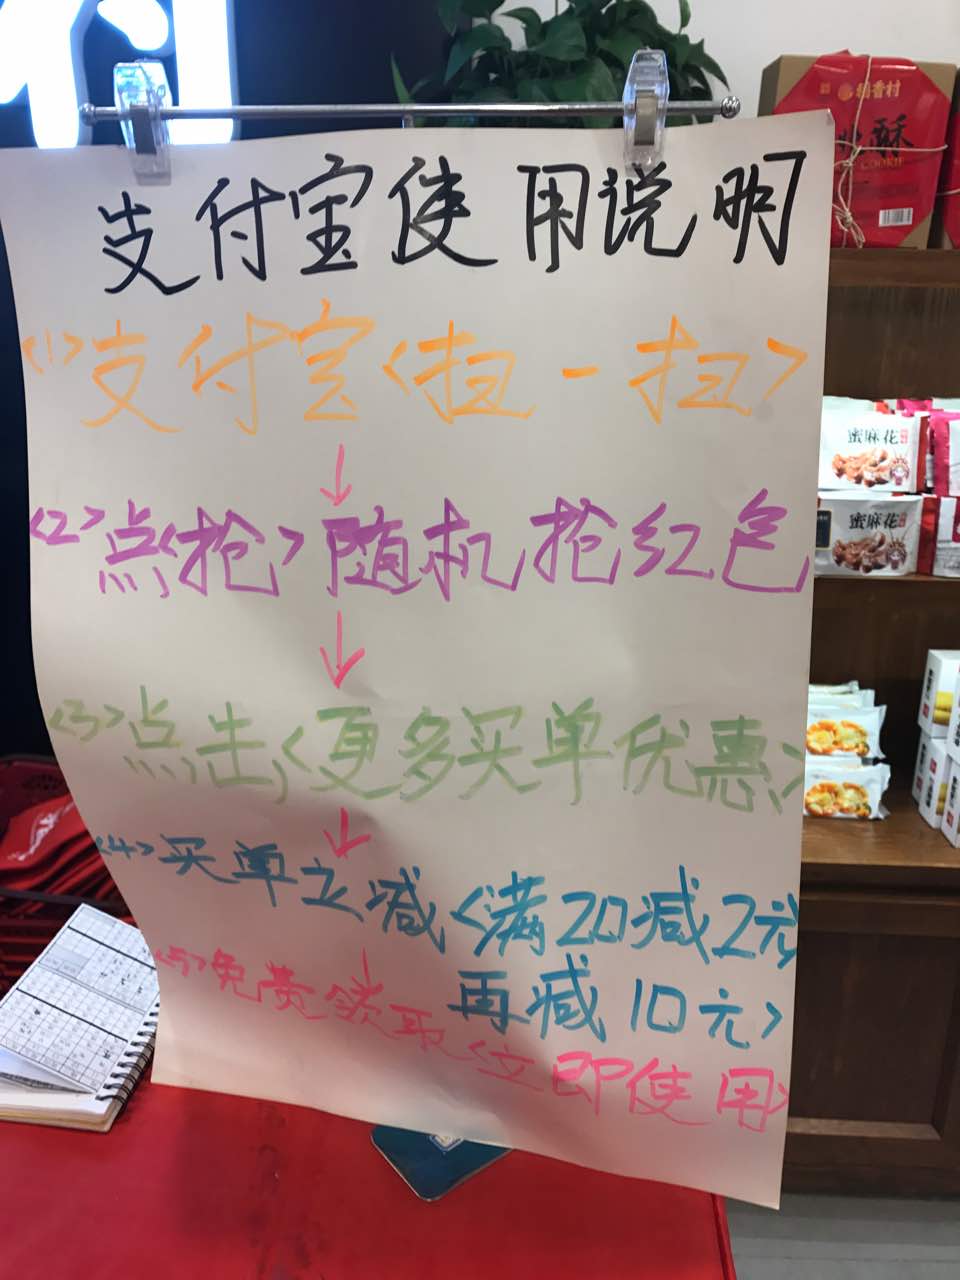 支付宝使用说明
<1>支付宝<扫一扫>
<2>点<抢>随机抢红包
<3>点击<更多买单优惠>
<4>买单立减<满20减2元
再减10元>
<5>免费领取<立即使用>
稻香村
酥
COOKIE
蜜麻花
蜜麻花